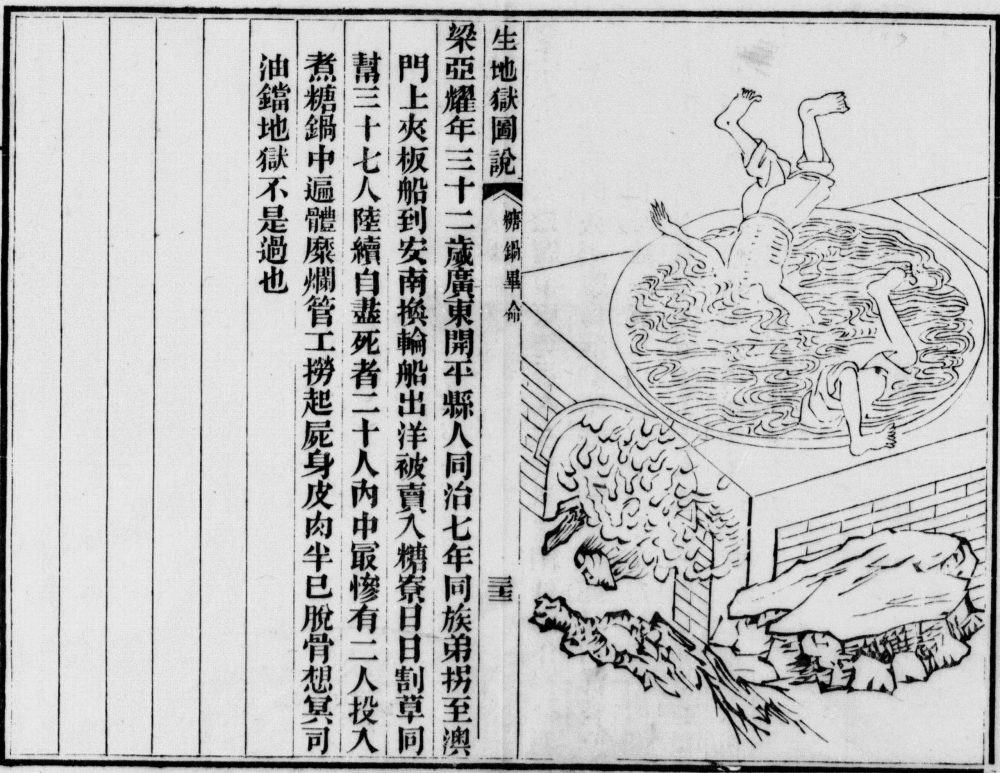 生地獄圖說
糖鍋畢命
三十三
梁亞耀年三十二歲廣東開平縣人同治七年同族弟拐至澳
門上夾板船到安南換輪船出洋被賣入糖寮日日割草同
幫三十七人陸續自盡死者二十人內中最慘有二人投入
煮糖鍋中遍體糜爛管工撈起屍身皮肉半已脫骨想冥司
油鐺地獄不是過也